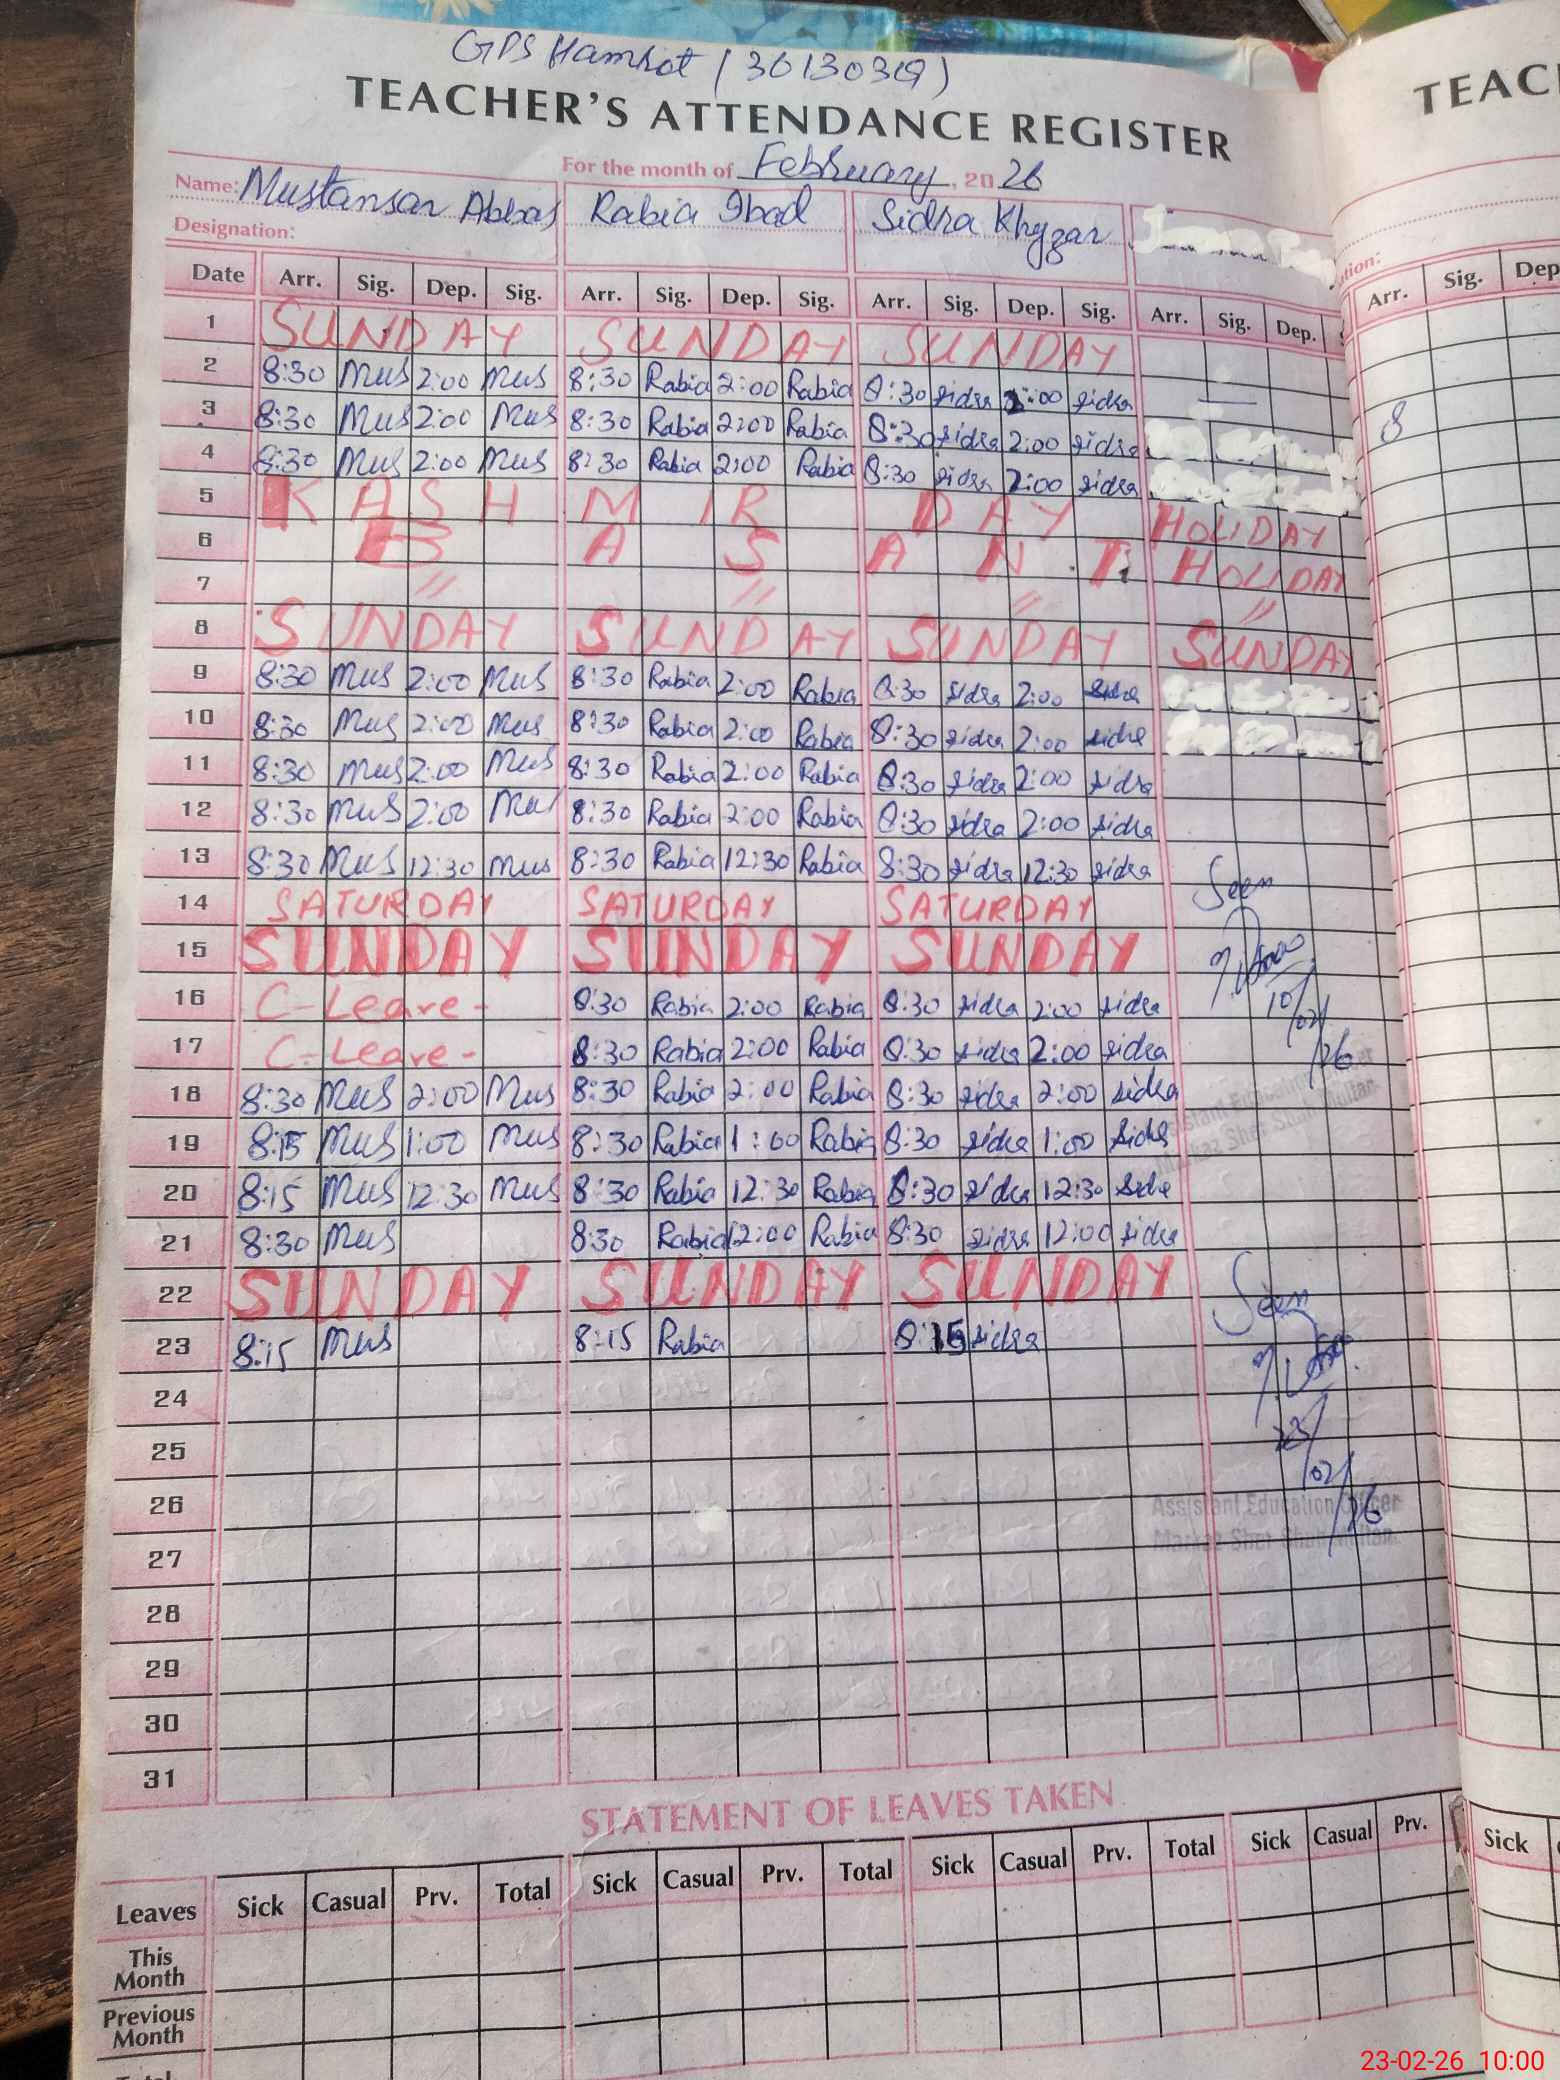 GPS Hamrot (36130319)
TEACHER'S ATTENDANCE REGISTER
TEAC
For the month of February, 2026
Name: Mustansar Abbas Rabia Ibad Sidra Khyzar
Designation:
Date Arr. Sig. Dep. Sig. Arr. Sig. Dep. Sig. Arr. Sig. Dep. Sig. Arr. Sig. Dep. Arr. Sig. Dep
1 SUNDAY SUNDAY SUNDAY
2 8:30 Mus 2:00 Mus 8:30 Rabia 2:00 Rabia 8:30 sidra 2:00 sidra
3 8:30 Mus 2:00 Mus 8:30 Rabia 2:00 Rabia 8:30 sidra 2:00 sidra 8
4 8:30 Mus 2:00 Mus 8:30 Rabia 2:00 Rabia 8:30 sidra 2:00 sidra
5 KASHMIR DAY HOLIDAY
6 BASANT HOLIDAY
7 " " " "
8 SUNDAY SUNDAY SUNDAY SUNDAY
9 8:30 Mus 2:00 Mus 8:30 Rabia 2:00 Rabia 8:30 sidra 2:00 sidra
10 8:30 Mus 2:00 Mus 8:30 Rabia 2:00 Rabia 8:30 sidra 2:00 sidra
11 8:30 Mus 2:00 Mus 8:30 Rabia 2:00 Rabia 8:30 sidra 2:00 sidra
12 8:30 Mus 2:00 Mus 8:30 Rabia 2:00 Rabia 8:30 sidra 2:00 sidra
13 8:30 Mus 12:30 Mus 8:30 Rabia 12:30 Rabia 8:30 sidra 12:30 sidra
14 SATURDAY SATURDAY SATURDAY Seen
15 SUNDAY SUNDAY SUNDAY
16 C-Leave- 8:30 Rabia 2:00 Rabia 8:30 sidra 2:00 sidra 10/02/26
17 C-Leave- 8:30 Rabia 2:00 Rabia 8:30 sidra 2:00 sidra
18 8:30 Mus 2:00 Mus 8:30 Rabia 2:00 Rabia 8:30 sidra 2:00 sidra Assistant Education Officer
19 8:15 Mus 1:00 Mus 8:30 Rabia 1:00 Rabia 8:30 sidra 1:00 sidra Markaz Sher Shah Multan
20 8:15 Mus 12:30 Mus 8:30 Rabia 12:30 Rabia 8:30 sidra 12:30 sidra
21 8:30 Mus 8:30 Rabia 12:00 Rabia 8:30 sidra 12:00 sidra
22 SUNDAY SUNDAY SUNDAY Seen
23 8:15 Mus 8:15 Rabia 8:15 sidra
24
25 23/02/26
26 Assistant Education Officer
27 Markaz Sher Shah Multan
28
29
30
31
STATEMENT OF LEAVES TAKEN
Leaves Sick Casual Prv. Total Sick Casual Prv. Total Sick Casual Prv. Total Sick Casual Prv. Sick
This Month
Previous Month
23-02-26 10:00